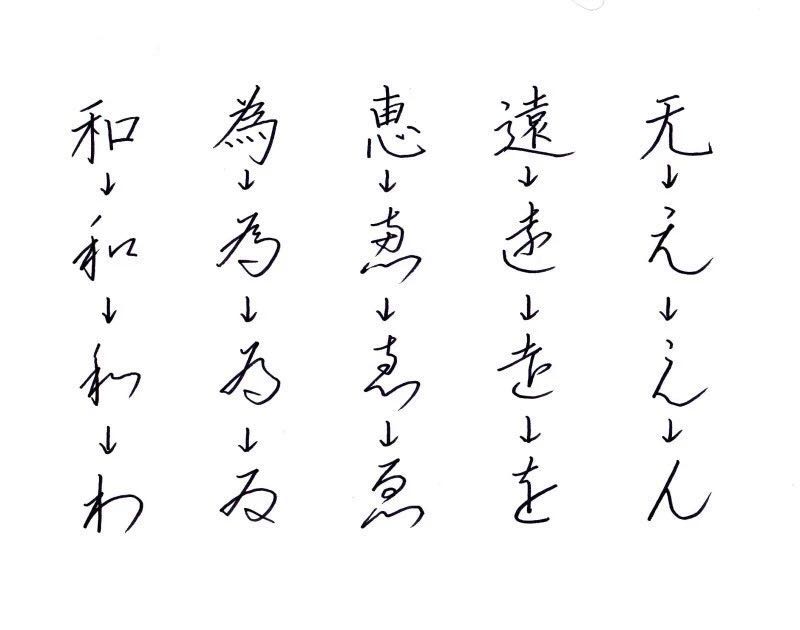 和 為 恵 遠 无
↓ ↓ ↓ ↓ ↓
和 為 恵 遠 无
↓ ↓ ↓ ↓ ↓
和 為 恵 遠 无
↓ ↓ ↓ ↓ ↓
わ ゐ ゑ を ん